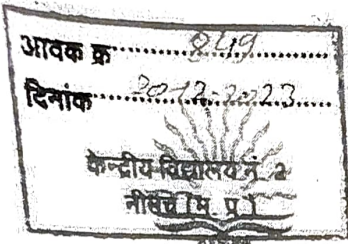 आवक क्र 849
दिनांक 20-12-2023
केन्द्रीय विद्यालय नं. 2
नीमच (म. प्र.)